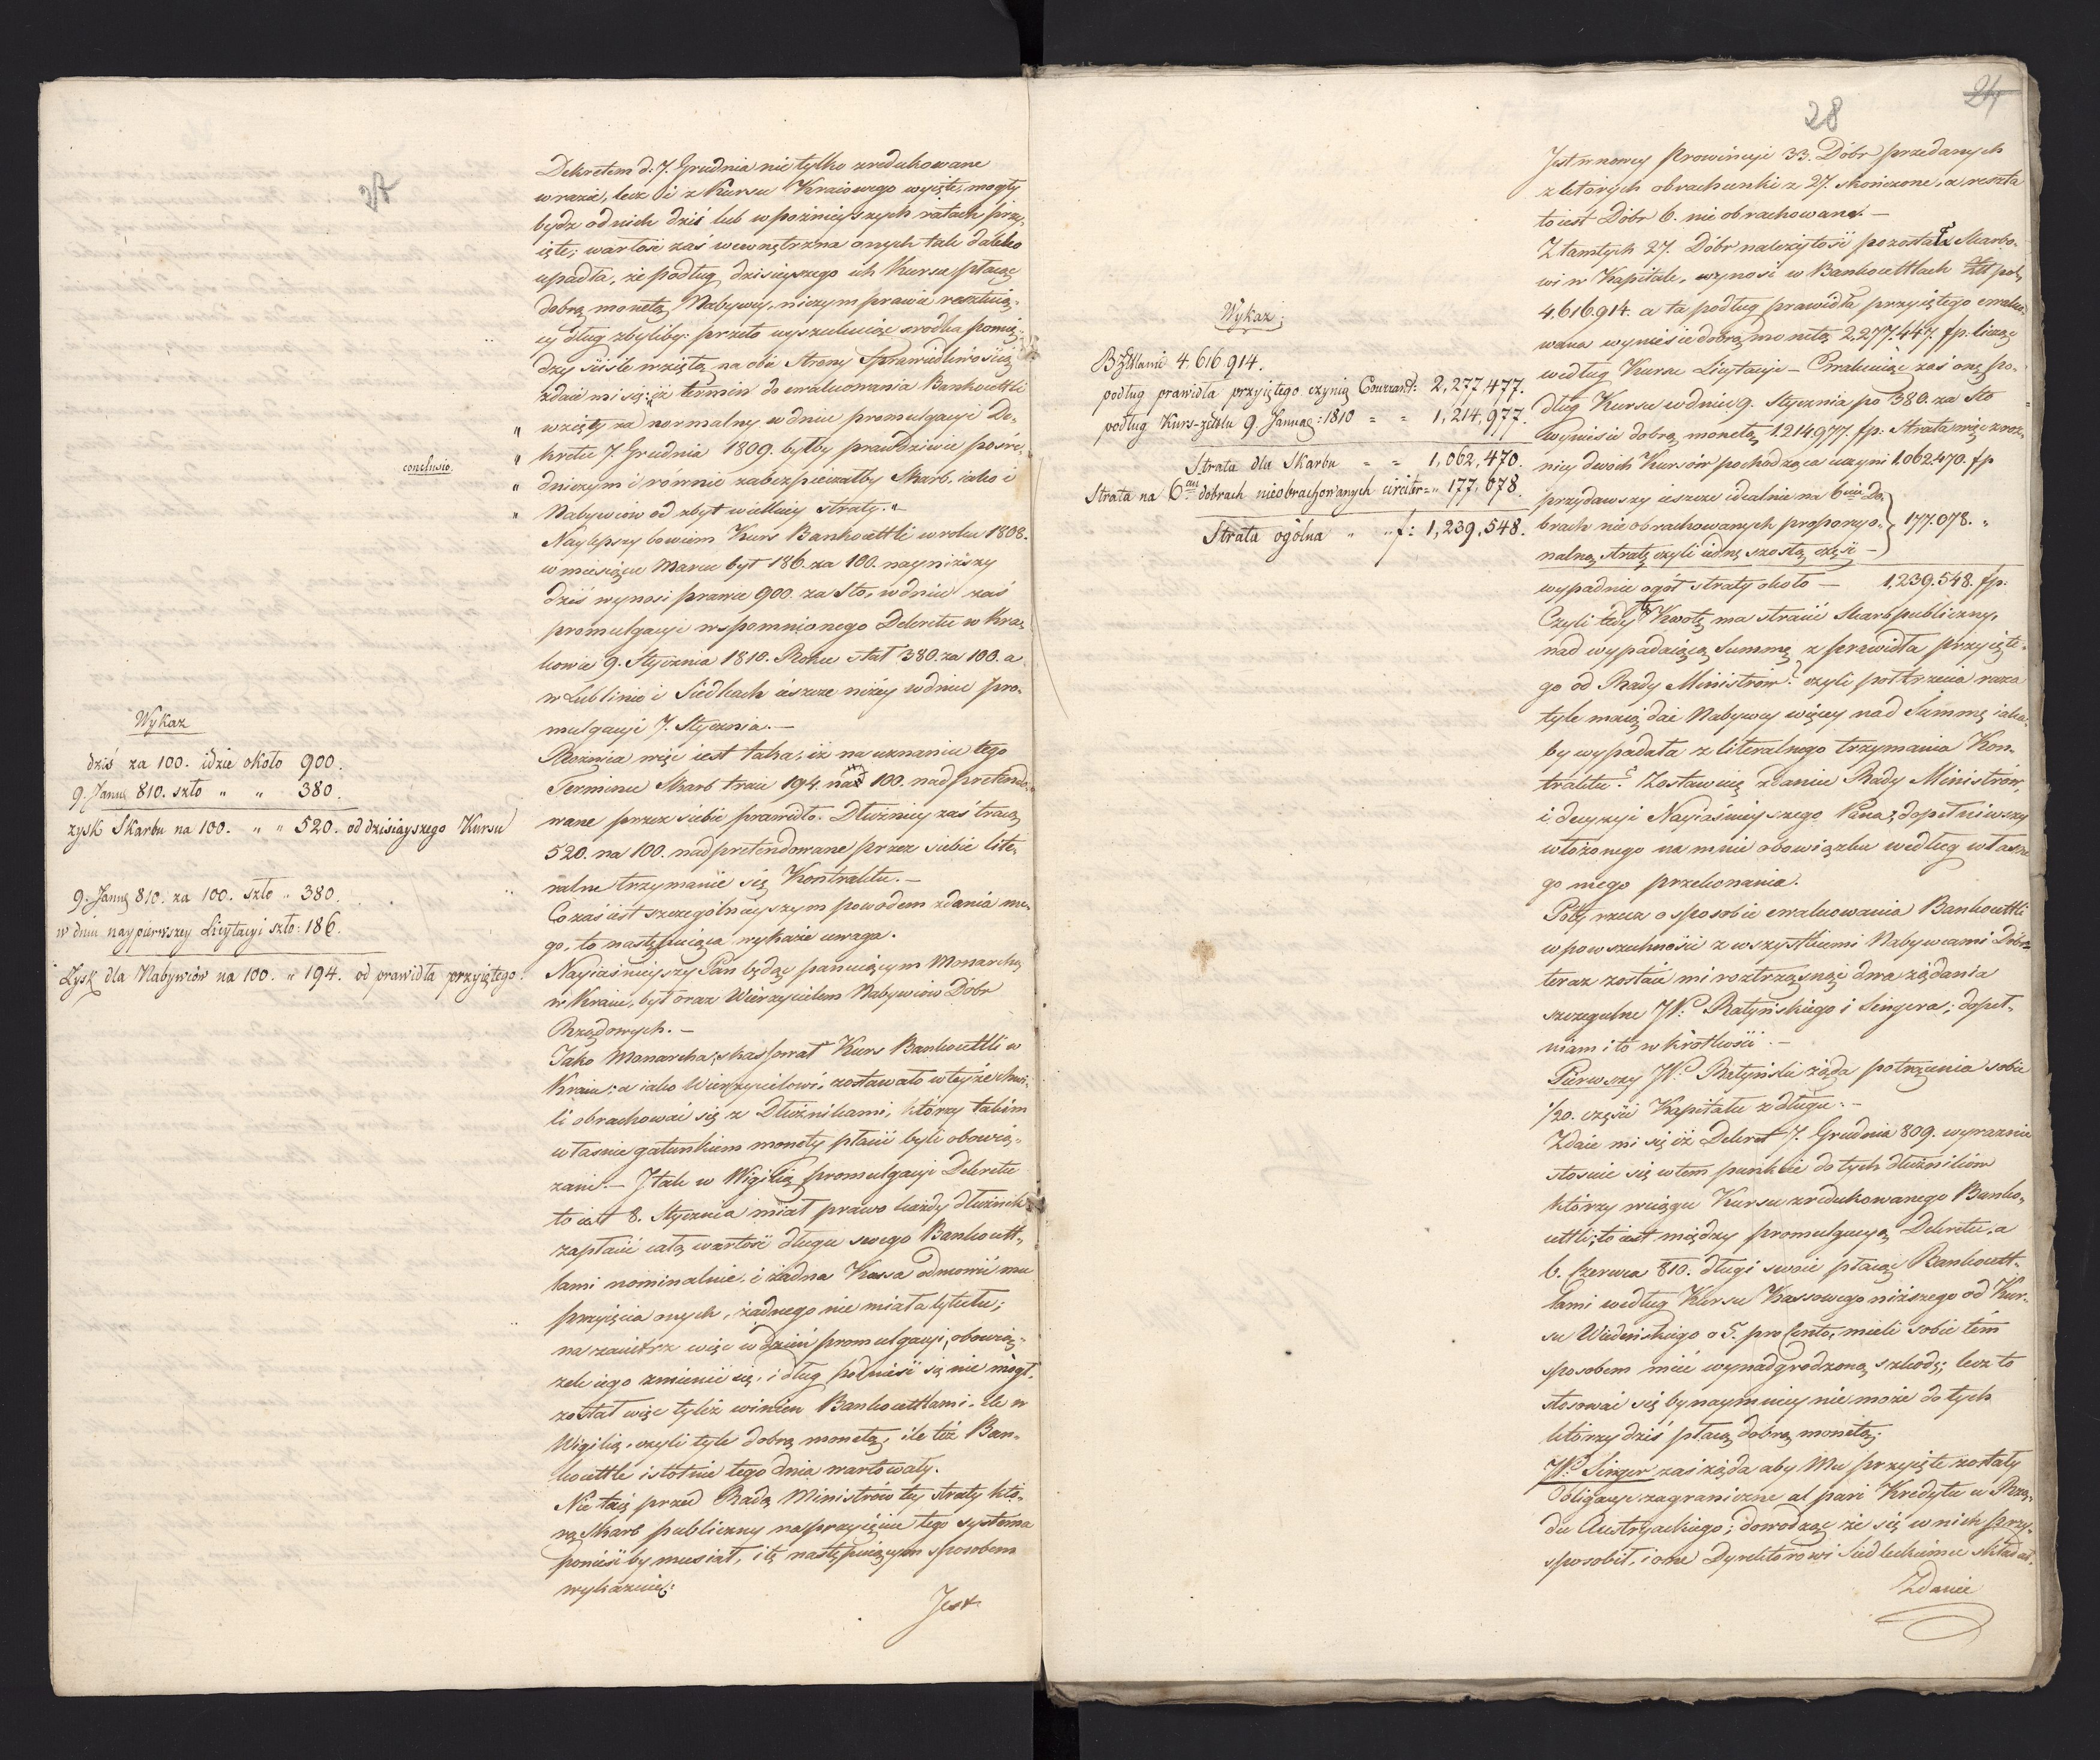 27
Dekretem d. 7. Grudnia nie tylko zredukowane
w razie, lecz i z Kursu Kraiowego wyięte, mogły
bydz od nich dziś lub w poźnieyszych ratach przy-
ięte; wartość zaś wewnętrzna onych tak daleko
upadła, że podług dzisieyszego ich Kursu płacąc
dobrą monetą Nabywcy, niczym prawie resztuią-
cy dług zbyliby: przeto wyszukuiąc srodka pomię-
dzy ściśle wziętą na obie Strony Sprawiedliwością
zdaie mi się: „iż termin do ewaluowania Bankocettli
„ wzięty za normalny w dniu promulgacyi De-
„ kretu 7 Grudnia 1809. byłby prawdziwie pośre-
conclusio.
„ dniczym i równie zabezpieczałby Skarb, iako i
„ Nabywców od zbyt wielkiey straty. „
Naylepszy bowiem Kurs Bankocettli w roku 1808.
w miesiącu Marcu był 186. za 100. nayniższy
dziś wynosi prawie 900. za Sto, w dniu zaś
promulgacyi wspomnionego Dekretu w Kra-
kowie 9. Stycznia 1810. Roku stał 380. za 100. a
w Lublinie i Siedlcach ieszcze niżey w dniu pro-
mulgacyi 7. Stycznia. —
Rożnica więc iest taka; iż na uznaniu tego
Terminu Skarb traci 194. nad 100. nad pretendo-
wane przez siebie prawidło. Dłużnicy zaś tracą
520. na 100. nad pretendowane przez siebie lite-
ralne trzymanie się Kontraktu. —
Co zaś iest szczególnieyszym powodem zdania me-
go, to następuiąca wykaże uwaga.
Nayiaśnieyszy Pan będąc panuiącym Monarchą
w Kraiu, był oraz Wierzycielem Nabywców Dóbr
Rządowych. —
Jako Monarcha, skassował Kurs Bankocettli w
Kraiu: a iako Wierzycielowi, zostawało w teyże chwi-
li obrachować się z Dłużnikami, którzy takim
właśnie gatunkiem monety płacić byli obowią-
zani. — J tak w Wigilią promulgacyi Dekretu
to iest 8. Stycznia miał prawo każdy dłużnik
zapłacić całą wartość długu swego Bankocett-
lami nominalnie, i żadna Kassa odmówić mu
przyięcia onych, żadnego nie miała tytułu;
nazaiutrz więc w dzień promulgacyi, obowią-
zek iego zmienić się, i dług podnieść się nie mógł.
został więc tyleż winien Bankocettlami, ile w
Wigilią, czyli tyle dobrą monetą, ile też Ban-
kocettle istotnie tego dnia wartowały.
Nie taię przed Radą Ministrów tey straty któ-
rą Skarb publiczny na przyięciu tego systema
ponieść by musiał, i tę następuiącym sposobem
wykazuię:
Jest
Wykaz
dziś za 100. idzie około 900.
9. Januar 810. szło „ „ 380.
zysk Skarbu na 100. „ „ 520. od dzisiayszego Kursu
9. Januar 810. za 100. szło „ 380.
w dniu naypierwszey Licytacyi szło: 186.
Zysk dla Nabywców na 100. „ 194. od prawidła przyiętego.
24
28
Wykaz:
BZettlami 4,616,914.
podług prawidła przyiętego czynią Courrant: 2,277,477.
podług Kurs-zettlu 9. Januar: 1810 = = 1,214,977.
Strata dla Skarbu = = 1,062,470.
Strata na 6ciu dobrach nieobrachowanych circiter = „ 177,078.
Strata ogólna „ „ f: 1,239,548.
Jest w nowey Prowincyi 33. Dóbr przedanych
z których obrachunki z 27. skończone, a reszta
to iest Dóbr 6. nie obrachowana. —
Z tamtych 27. Dóbr należytość pozostała Skarbo-
wi w Kapitale, wynosi w Bankocettlach Złł pol,
4,616,914. a ta podług prawidła przyiętego ewaluo-
wana wyniesie dobrą monetą 2,277,447. fp. licząc
według Kursu Licytacyi — Ewaluuiąc zaś onę po-
dług Kursu w dniu 9. Stycznia po 380. za Sto
wyniesie dobrą monetą 1,214,977. fp: Strata więc z roż-
nicy dwóch Kursów pochodząca uczyni 1,062,470. fp
przydawszy ieszcze idealnie na 6ciu Do-
brach nie obrachowanych proporcyo- } 177.078. „
nalną stratę czyli iedną szostą część —
wypadnie ogół straty około — 1,239.548. fp:
Czyli tedy tę Kwotę ma stracić Skarb publiczny,
nad wypadaiącą Summę z prawidła przyięte-
go od Rady Ministrów? czyli półtrzecia raza
tyle maią dać Nabywcy więcey nad Summę iaka-
by wypadała z literalnego trzymania Kon-
traktu? Zostawuię zdaniu Rady Ministrów,
i decyzyi Nayiaśnieyszego Pana; dopełniwszy
włożonego na mnie obowiązku według własne-
go mego przekonania.
Póty rzecz o sposobie ewaluowania Bankocettli
w powszechności z wszystkiemi Nabywcami Dóbr
teraz zostaie mi roztrząsnąć dwa żądania
szczegulne JP. Ratyńskiego i Singera; dopeł-
niam i to w krótkości. —
Pierwszy JP. Retyński żąda potrącenia sobie
1/20. części Kapitału z długu. —
Zdaie mi się iż Dekret 7. Grudnia 809. wyraźnie
stosuie się w tem punkcie do tych dłużników
którzy w ciągu Kursu zredukowanego Banko-
cettli; to iest między promulgacyą Dekretu, a
6. Czerwca 810. długi swoie płacąc Bankocett-
lami według Kursu Kassowego niższego od Kur-
su Wiedeńskiego o 5. pro Cento, mieli sobie tém
sposobem mieć wynadgrodzoną szkodę; lecz to
stosować się bynaymniey nie może do tych
którzy dziś płacą dobrą monetą;
JP. Singer zaś żąda aby Mu przyięte zostały
Obligacye zagraniczne al pari Kredytu u Rzą-
du Austryackiego; dowodząc że się w nich przy-
sposobił, i one Dyrektorowi Siedleckiemu składał.
Zdanie